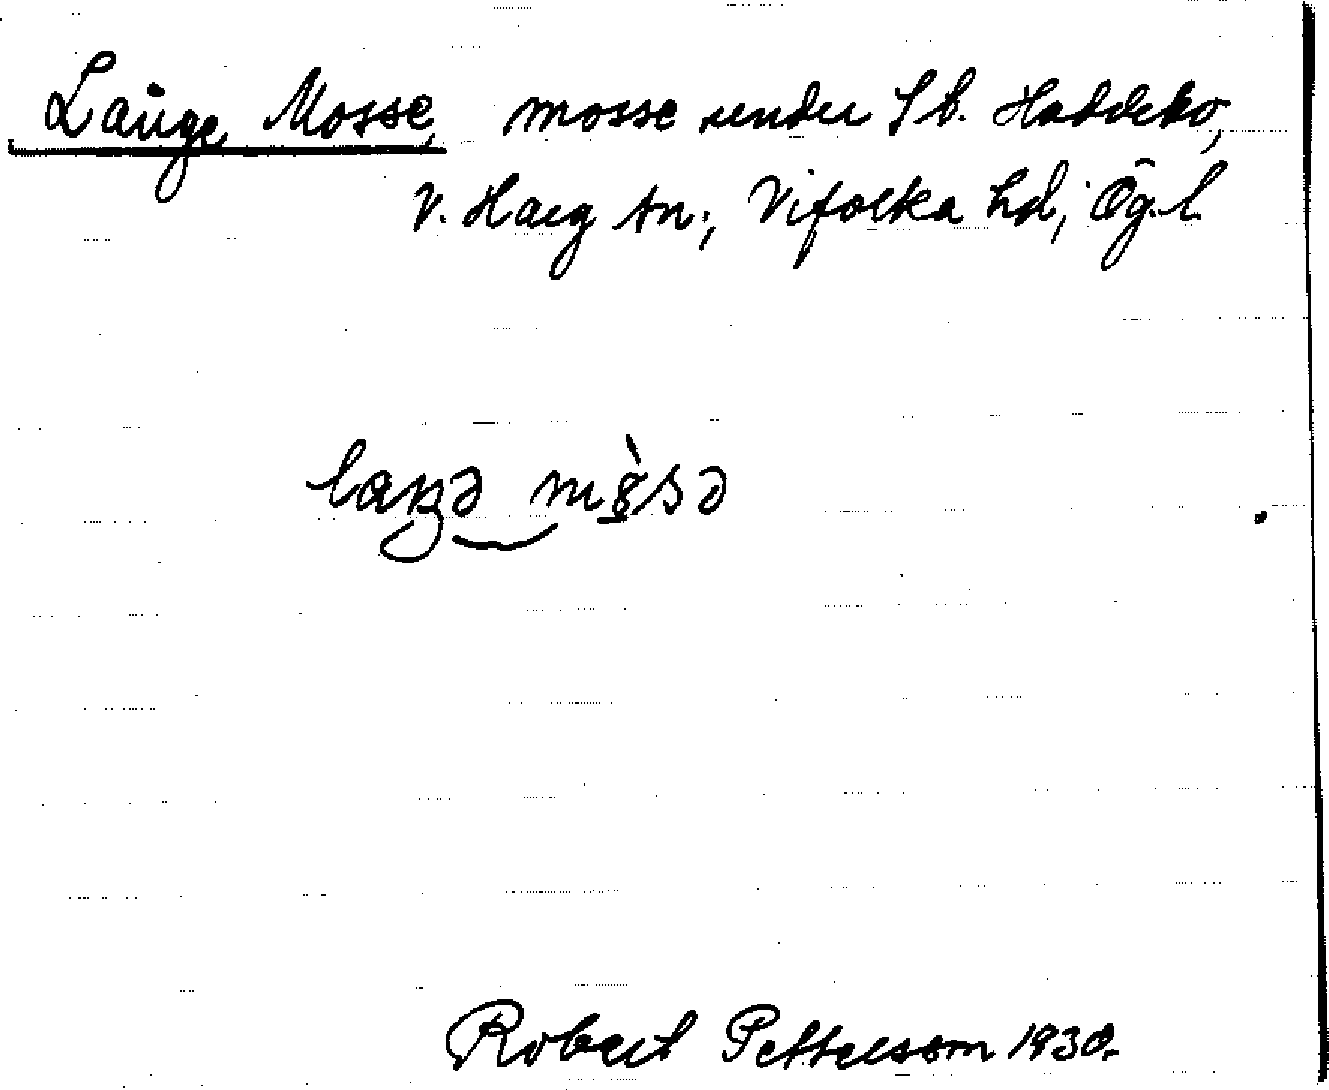 Långe Mosse, mosse under Sb. Haddebo,
V. Harg sn:, Vifolka hd; Ög.l.
Robert Pettersson 1930.